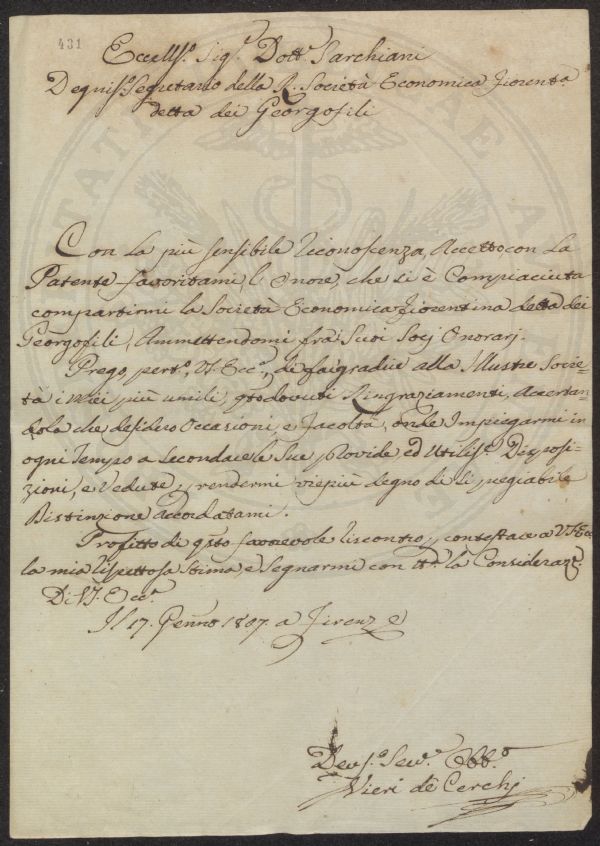 431
Eccell.º Sig.º Dott.º Sarchiani
Degniss.º Segretario della R. Società Economica Fiorent.ª
detta dei Georgofili
Con la più sensibile riconoscenza, Accetto con la
Patente favoritami l'Onore, che si è Compiaciuta
compartirmi la Società Economica Fiorentina detta dei
Georgofili, Ammettendomi fra i Suoi Socj Onorarj.
Prego pert.º, V.S. Ecc.ª, di far gradire alla Illustre Socie=
tà i miei più umili, e dovuti Ringraziamenti, Accertan
dola che desidero Occasioni, e Facoltà, onde Impiegarmi in
ogni Tempo a Secondare le Sue provide ed Utiliss.e Disposi=
zioni, e Vedute, e rendermi vie più degno di sì pregiabile
Distinzione Accordatami.
Profitto di q.sto favorevole riscontro, p contestare a V.S. Ecc.
la mia rispettosa Stima, e Segnarmi con tt.ª la Consideraz.e
Di V.S. Ecc.ª
Il 17. Genn.o 1807. a Firenze
Dev.º Serv.º Obb.º
Vieri de Cerchj